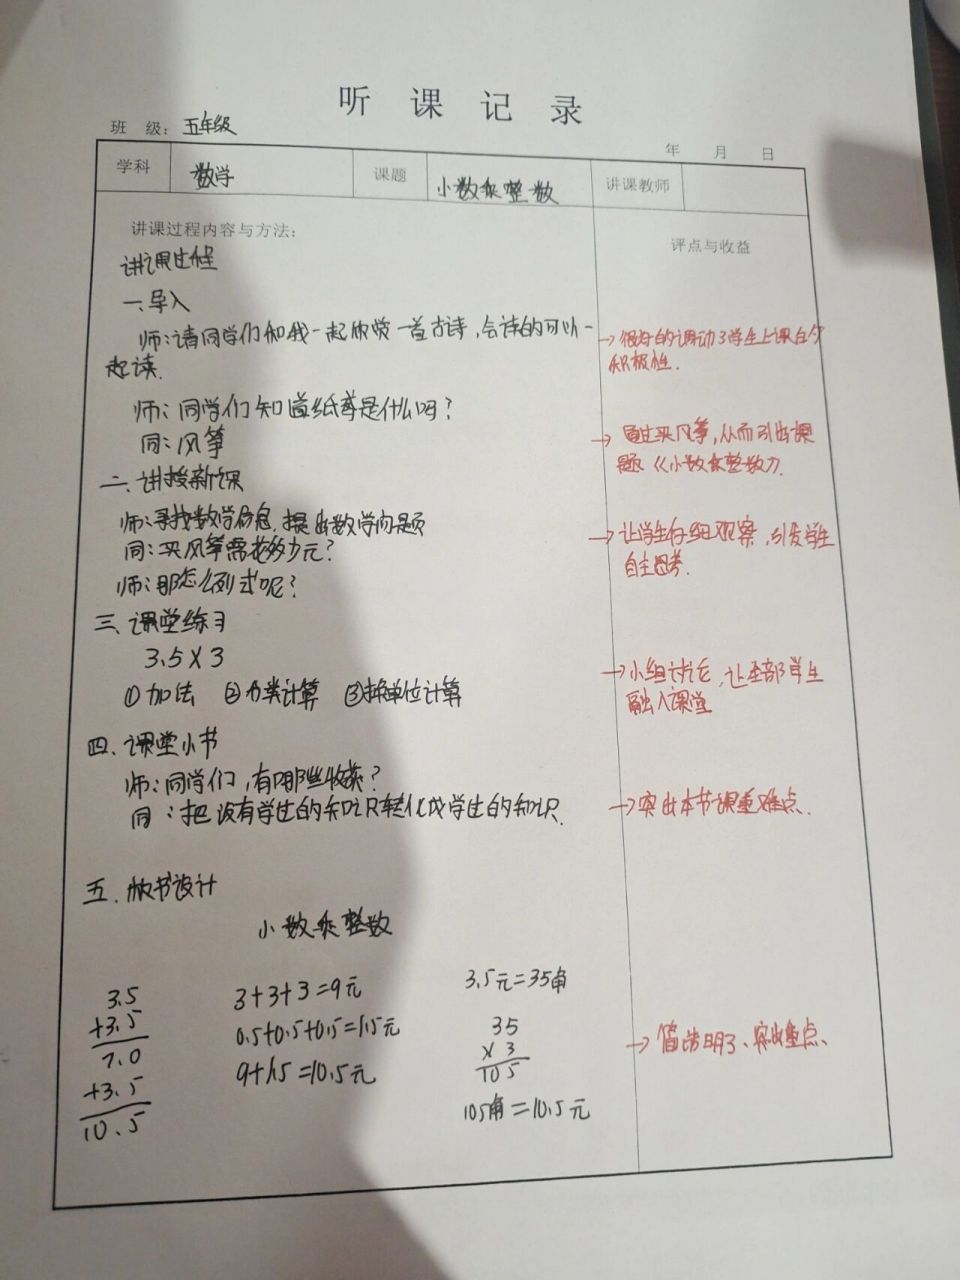 听课记录
班 级：五年级
年 月 日
学科 数学 课题 小数乘整数 讲课教师
讲课过程内容与方法：
评点与收益
讲课过程
一、导入
师：请同学们和我一起欣赏一首古诗，会读的可以一
起读.
→很好的调动了学生上课的
积极性.
师：同学们知道纸鸢是什么吗？
同：风筝
→通过买风筝,从而引出课
题《小数乘整数》.
二、讲授新课
师：寻找数学信息,提出数学问题
同：买风筝需花多少元？
师：那怎么列式呢？
→让学生仔细观察,引发学生
自主思考.
三、课堂练习
3.5×3
①加法 ②分类计算 ③换单位计算
→小组讨论,让全部学生
融入课堂
四、课堂小节
师：同学们,有哪些收获？
同：把没有学过的知识转化成学过的知识.
→突出本节课重难点.
五.板书设计
小数乘整数
3.5
+3.5
7.0
+3.5
10.5
3+3+3=9元
0.5+0.5+0.5=1.5元
9+1.5=10.5元
3.5元=35角
35
×3
105
105角=10.5元
→简洁明了、突出重点、